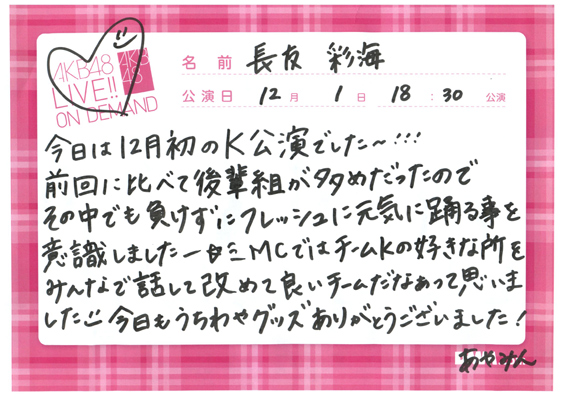 AKB48
LIVE!!
ON DEMAND
AKB
48
名前 長友 彩海
公演日 12月 1日 18:30 公演
今日は12月初のK公演でした〜!!!
前回に比べて後輩組が多めだったので
その中でも負けずにフレッシュに元気に踊る事を
意識しました MCではチームKの好きな所を
みんなで話して改めて良いチームだなあって思いま
した 今日もうちわやグッズありがとうございました!
あやみん